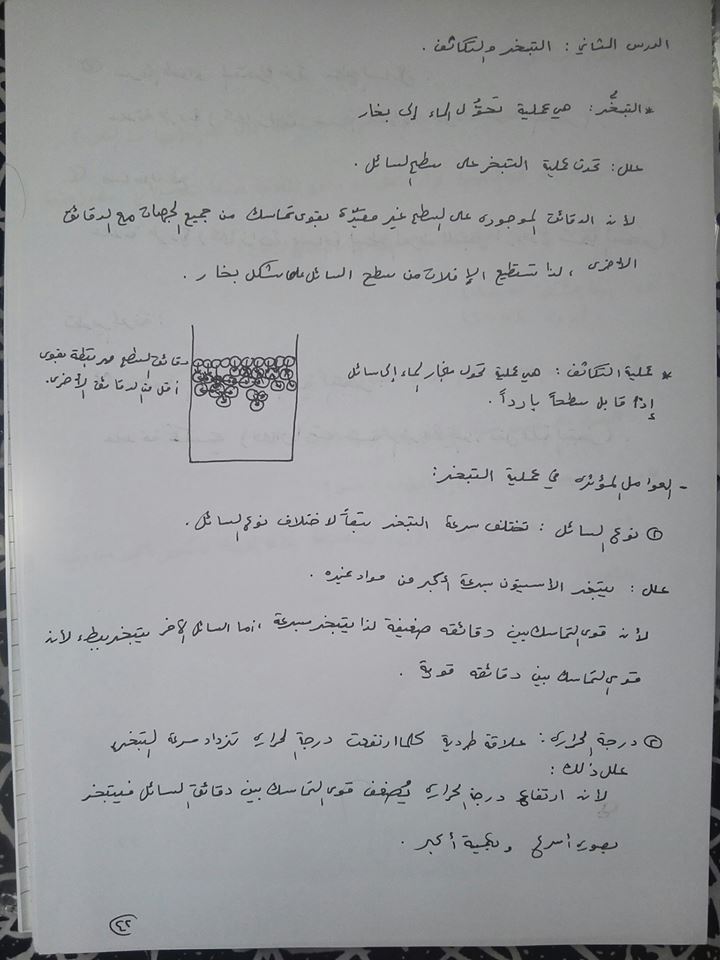 الدرس الثاني : التبخر والتكاثف .
* التبخُّر : هي عملية تحوُّل الماء إلى بخار
علل : تحدث عملية التبخر على سطح السائل .
لأن الدقائق الموجودة على السطح غير مقيّدة بقوى تماسك من جميع الجهات مع الدقائق
الأخرى ، لذا تستطيع الإفلات من سطح السائل على شكل بخار .
دقائق السطح مرتبطة بقوى
أقل من الدقائق الأخرى .
* عملية التكاثف : هي عملية تحول بخار الماء إلى سائل
إذا قابل سطحاً بارداً .
- العوامل المؤثرة في عملية التبخر :
① نوع السائل : تختلف سرعة التبخر تبعاً لاختلاف نوع السائل .
علل : يتبخر الأسيتون بسرعة أكبر من مواد غيره .
لأن قوى التماسك بين دقائقه ضعيفة لذا يتبخر بسرعة ، أما السائل الآخر يتبخر ببطء لأن
قوى التماسك بين دقائقه قوية .
② درجة الحرارة : علاقة طردية كلما ارتفعت درجة الحرارة تزداد سرعة التبخر
علل ذلك :
لأن ارتفاع درجة الحرارة يُضعف قوى التماسك بين دقائق السائل فيتبخر
بصورة أسرع وبكمية أكبر .
٤٢